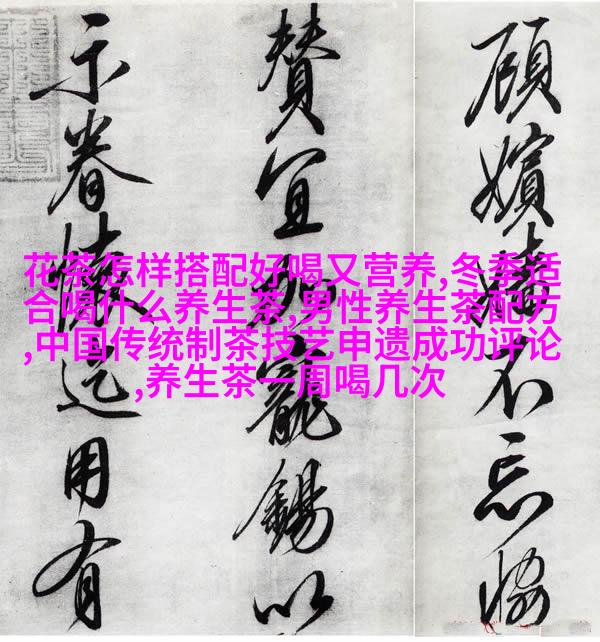 顧嬪不忘恊
賛宜加寵錫以
示眷懷迄用有
花茶怎样搭配好喝又营养,冬季适
合喝什么养生茶,男性养生茶配方
,中国传统制茶技艺申遗成功评论
,养生茶一周喝几次